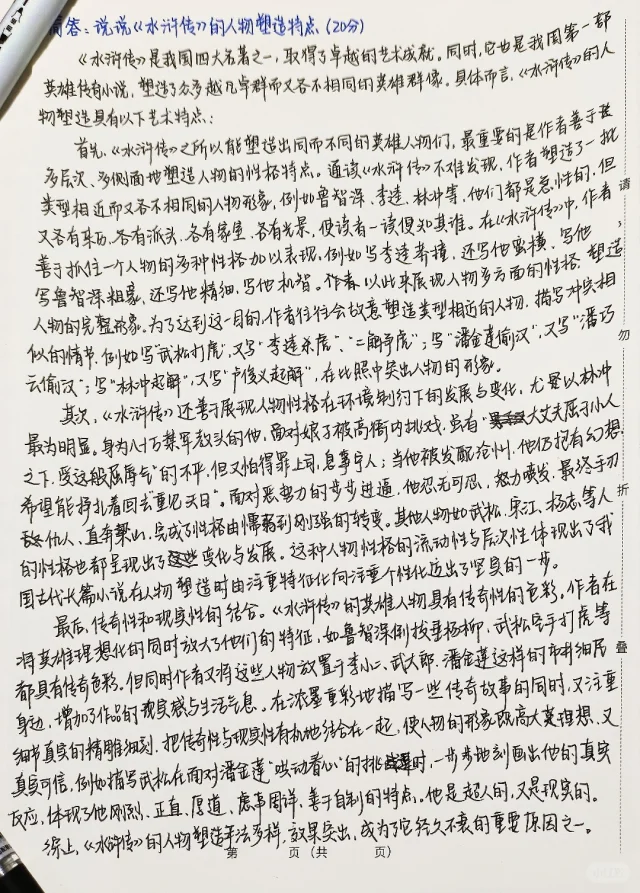 简答：说说《水浒传》的人物塑造特点（20分）
《水浒传》是我国四大名著之一，取得了卓越的艺术成就。同时，它也是我国第一部
英雄传奇小说，塑造了众多超凡卓群而又各不相同的英雄群像。具体而言，《水浒传》的人
物塑造具有以下艺术特点：
首先，《水浒传》之所以能塑造出同而不同的英雄人物们，最重要的是作者善于
多层次、多侧面地塑造人物的性格特点。通读《水浒传》不难发现，作者塑造了一批
类型相近而又各不相同的人物形象，例如鲁智深、李逵、林冲等，他们都是急性的，但
又各有来历，各有派头，各有家室，各有光景，使读者一读便知其谁。在《水浒传》中，作者
善于抓住一个人物的多种性格加以表现，例如写李逵莽撞，还写他蛮横、写他
写鲁智深粗豪，还写他精细，写他机智。作者以此来展现人物多方面的性格，塑造
人物的完整形象。为了达到这一目的，作者往往会故意塑造类型相近的人物，描写冲突相
似的情节，例如写“武松打虎”，又写“李逵杀虎”、“二解争虎”；写“潘金莲偷汉”，又写“潘巧
云偷汉”；写“林冲起解”，又写“卢俊义起解”，在比照中突出人物的形象。
其次，《水浒传》还善于展现人物性格在环境制约下的发展与变化，尤是以林冲
最为明显。身为八十万禁军教头的他，面对娘子被高衙内挑戏，虽有“大丈夫屈于小人
之下，受这般屈辱气”的不平，但又怕得罪上司，息事宁人；当他被发配沧州，他仍抱有幻想，
希望能挣扎着回去“重见天日”。面对恶势力的步步进逼，他忍无可忍，怒力喷发，最终手刃
仇人，直奔梁山，完成了性格由懦弱到刚强的转变。其他人物如武松、宋江、杨志等人
的性格也都呈现出了变化与发展。这种人物性格的流动性与层次性体现出了我
国古代长篇小说在人物塑造时由注重特征化向注重个性化迈出了坚实的一步。
最后，传奇性和现实性的结合。《水浒传》的英雄人物具有传奇性的色彩。作者在
将英雄理想化的同时放大了他们的特征，如鲁智深倒拔垂杨柳，武松空手打虎等
都具有传奇色彩。但同时作者又将这些人物放置于李小二、武大郎、潘金莲这样的市井细民
身边，增加了作品的现实感与生活气息。在浓墨重彩地描写一些传奇故事的同时，又注重
细节真实的精雕细刻，把传奇性与现实性有机地结合在一起，使人物的形象既高大理想，又
真实可信，例如描写武松在面对潘金莲“哄动春心”的挑逗时，一步步地刻画出他的真实
反应，体现了他刚烈、正直、厚道、虑事周详、善于自制的特点。他是超人的，又是现实的。
综上，《水浒传》的人物塑造手法多样，效果突出，成为了它经久不衰的重要原因之一。
第 页（共 页）
请
勿
折
叠